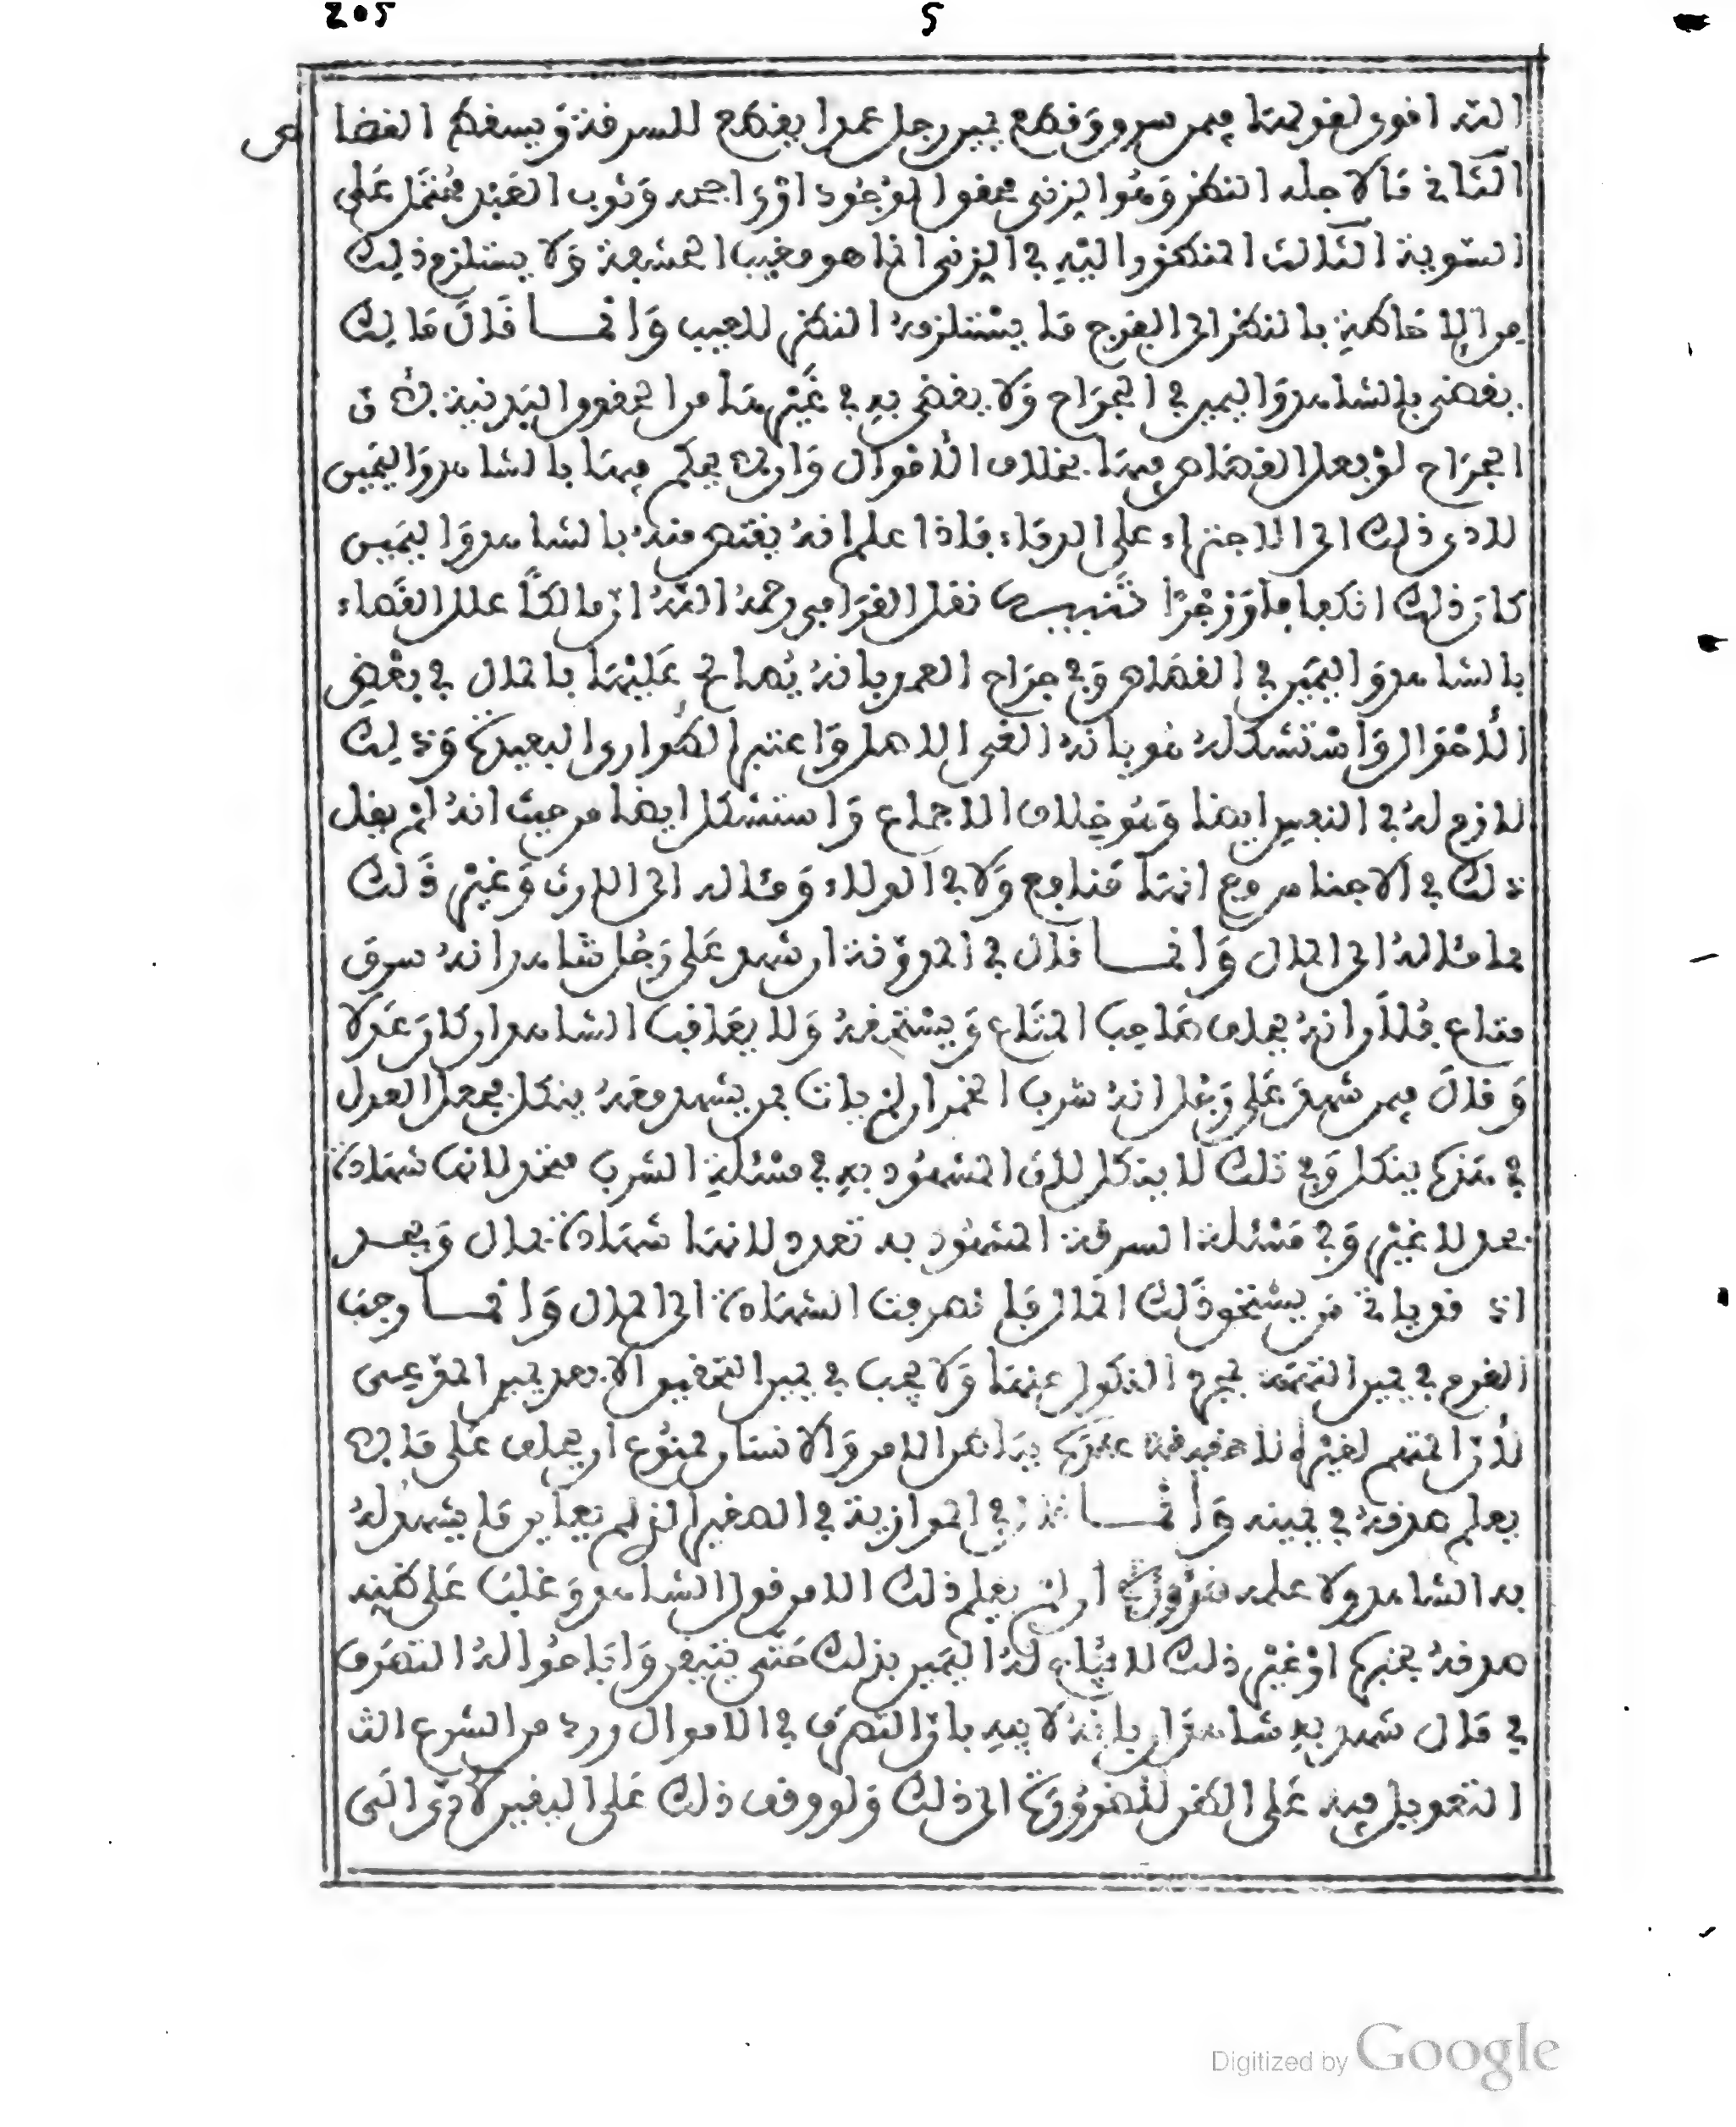 205 5
الله اقوى لقولها فيمن سرق وقطع يمين رجل عمدا يقطع للسرقة ويسقط القصا
ص
الثاني قال لاجله النظر وهو الزنى محقق الوجود او راجحه وثوب العبد محتمل على
السوية الثالث المنظور اليه في الزنى انما هو مغيب الحشفة ولا يستلزم ذلك
من الاحاطة بالنظر الى الفرج ما يستلزمه النظر للعيب وانما قال مالك
يقضى بالشاهد واليمين في الجراح ولا يقضى به في غيرها من الحقوق البدنية لان
الجراح لو بطل القصاص فيها بخلاف الاموال وان لم يحكم فيها بالشاهد واليمين
لادى ذلك الى الاجتراء على الدماء فاذا علم انه يقتص منه بالشاهد واليمين
كان ذلك انكفافا وزجرا تنبيه نقل القرافي رحمه الله ان مالكا علل القضاء
بالشاهد واليمين في القصاص وفي جراح العمد بانه يصالح عليها بالمال في بعض
الاحوال واستشكله هو بانه الغى الاصل واعتبر الطوارى البعيدة وذلك
لازم له في النفس ايضا وهو خلاف الاجماع واستشكل ايضا من حيث انه لم يقل
ذلك في الاحباس مع انها منافع ولا في الولاء ومثاله الى الارث وغير ذلك
مما مثاله الى المال وانما قال في المدونة ان شهد على رجل شاهد انه سرق
متاع فلان انه يحلف صاحب المتاع ويستحقه ولا يعاقب الشاهد ان كان عدلا
وقال فيمن شهد على رجل انه شرب الخمر ان لم يات بمن يشهد معه ينكل فجعل العدل
في هذه ينكل وفي تلك لا ينكل لان المشهود به في مسئلة الشرب متحد لانها شهادة
بحد لا غير وفي مسئلة السرقة المشهود به تعدد لانها شهادة بمال وبحد
اذ قد ياتي من يستحق ذلك المال فلم تصرف الشهادة الى المال وانما وجب
الغرم في يمين التهمة بمجرد النكول عنها ولا يجب في يمين التحقيق الا بعد يمين المدعى
لان المتهم لغيره لا حقيقة عنده بباطن الامر والانسان ممنوع ان يحلف على ما لم
يعلم صدقه في يمينه وانما قال في الموازية في الصغير اذا لم يعاين ما يشهد له
به الشاهد ولا علمه ضرورة او لم يعلم ذلك الا من قول الشاهد وغلب على ظنه
صدقه بخبره او غير ذلك لا يباح له اليمين بذلك حتى يتيقن واباحوا له التصرف
في مال شهد به شاهدان بانه لابيه بان التصرف في الاموال ورد من الشرع الث
التعويل فيه على الظن للضرورة الى ذلك ولو وقف ذلك على اليقين لادى الى
Digitized by Google